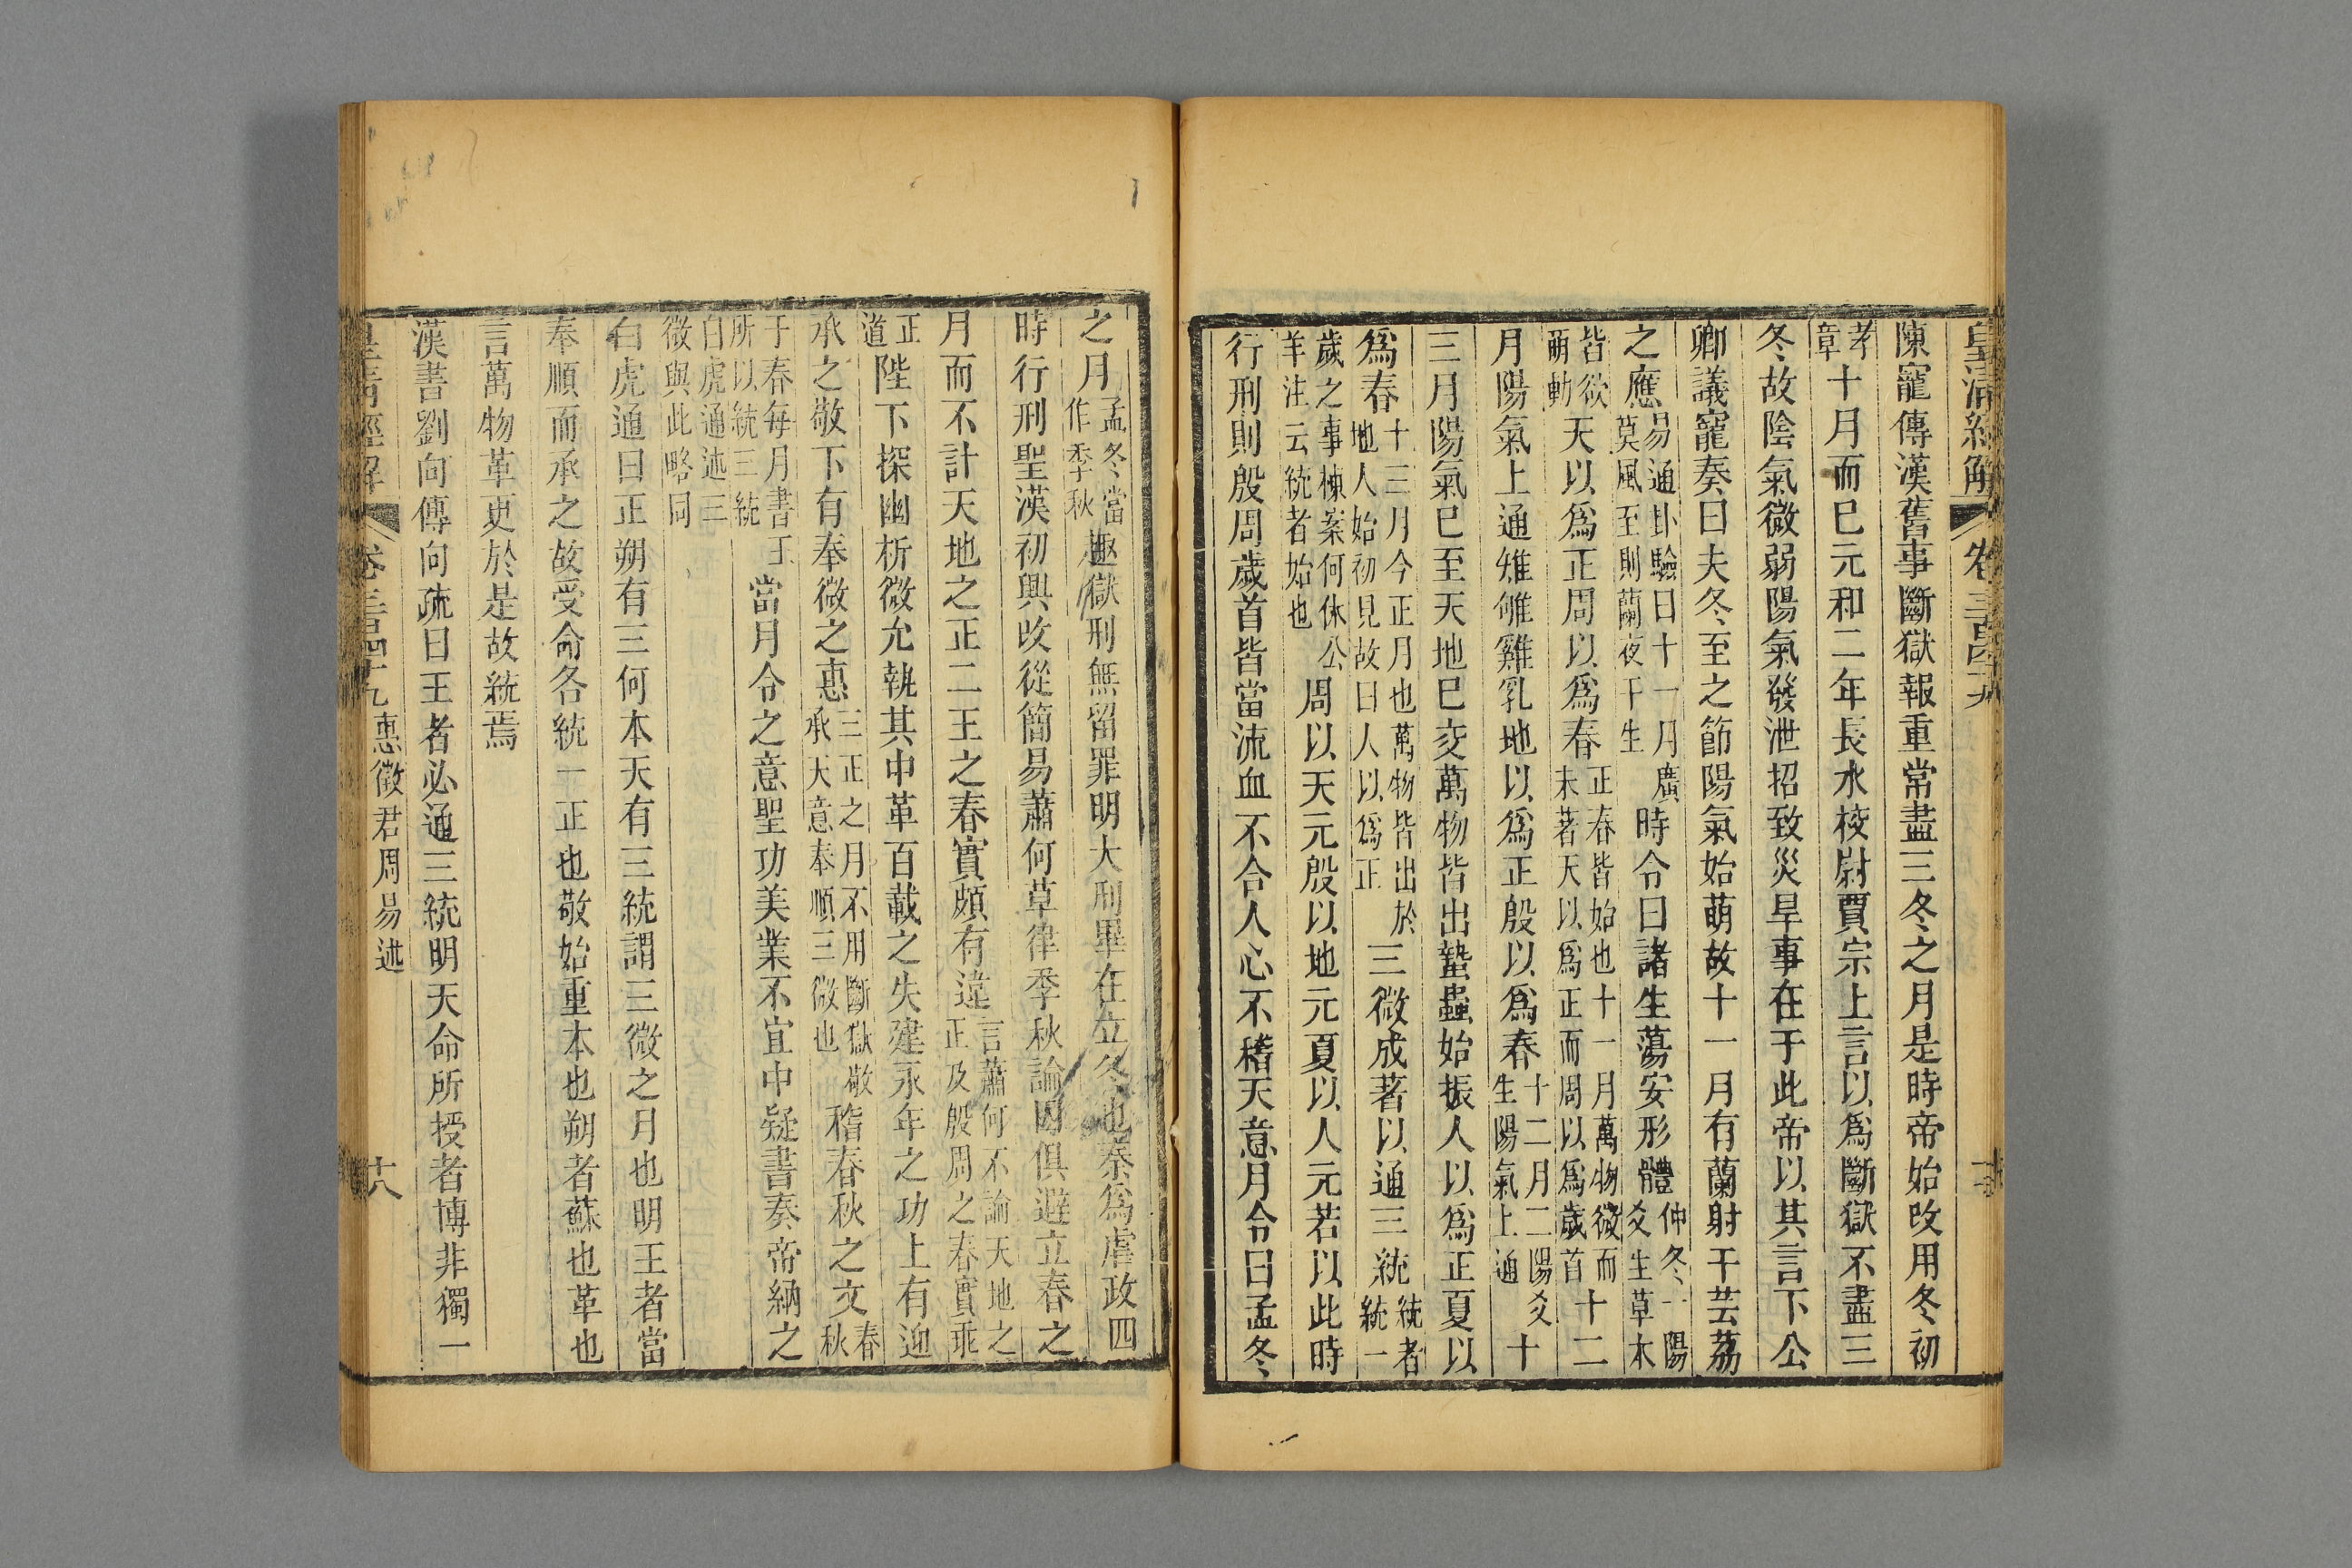 皇清經解 卷三百四十九
陳寵傳漢舊事斷獄報重常盡三冬之月是時帝始改用冬初
孝章十月而已元和二年長水校尉賈宗上言以爲斷獄不盡三
冬故陰氣微弱陽氣發泄招致災旱事在于此帝以其言下公
卿議寵奏曰夫冬至之節陽氣始萌故十一月有蘭射干芸荔
之應易通卦驗曰十一月廣莫風至則蘭夜干生時令曰諸生蕩安形體仲冬一陽爻生草木
皆欲萌動天以爲正周以爲春正春皆始也十一月萬物微而未著天以爲正而周以爲歲首十二
月陽氣上通雉雊雞乳地以爲正殷以爲春十二月二陽爻生陽氣上通十
三月陽氣已至天地已交萬物皆出蟄蟲始振人以爲正夏以
爲春十三月今正月也萬物皆出於地人始初見故曰人以爲正三微成著以通三統統者統一
歲之事棟案何休公羊注云統者始也周以天元殷以地元夏以人元若以此時
行刑則殷周歲首皆當流血不合人心不稽天意月令曰孟冬
之月孟冬當作季秋趣獄刑無留罪明大刑畢在立冬也秦爲虐政四
時行刑聖漢初興改從簡易蕭何草律季秋論囚俱避立春之
月而不計天地之正二王之春實頗有違言蕭何不論天地之正及殷周之春實乖
正道陛下探幽析微允執其中革百載之失建永年之功上有迎
承之敬下有奉微之惠三正之月不用斷獄敬承天意奉順三微也稽春秋之文春秋
于春每月書王所以統三統當月令之意聖功美業不宜中疑書奏帝納之
白虎通述三微與此略同
白虎通曰正朔有三何本天有三統謂三微之月也明王者當
奉順而承之故受命各統一正也敬始重本也朔者蘇也革也
言萬物革更於是故統焉
漢書劉向傳向疏曰王者必通三統明天命所授者博非獨一
皇清經解 卷三百四十九 惠徵君周易述 十八